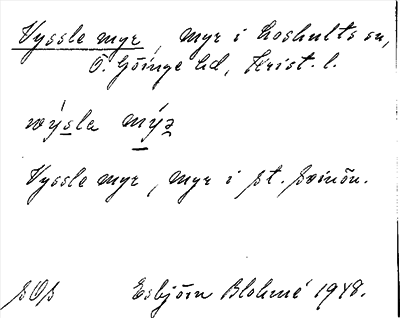 Vyssle myr, myr i Loshults sn,
Ö. Göinge hd, Krist. l.
výsla mýʒ
Vyssle myr, myr i st. Svinön.
SOS Esbjörn Blohmé 1948.